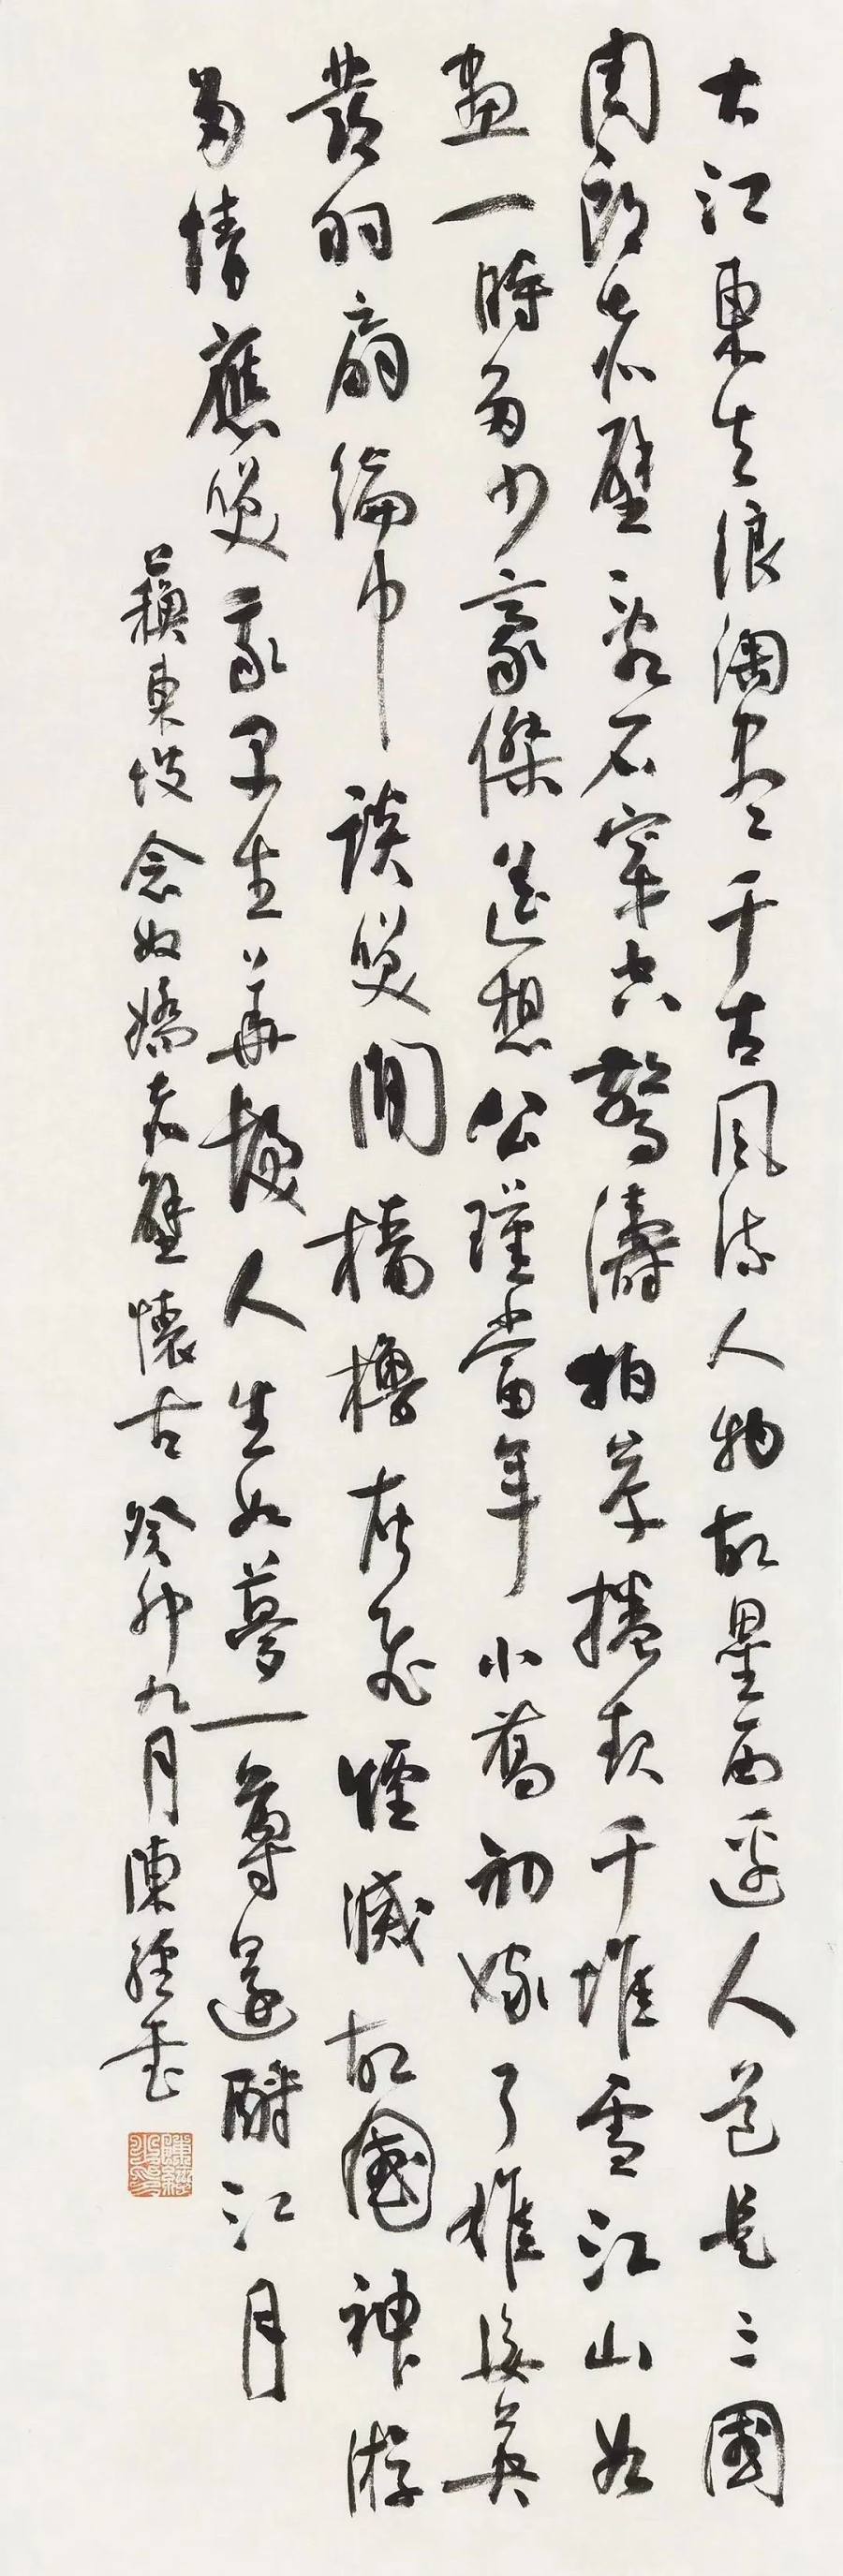 大江東去浪淘盡千古風流人物故壘西邊人道是三國
周郎赤壁亂石穿空驚濤拍岸捲起千堆雪江山如
畫一時多少豪傑遙想公瑾當年小喬初嫁了雄姿英
發羽扇綸巾談笑間檣櫓灰飛煙滅故國神游
多情應笑我早生華髮人生如夢一尊還酹江月
蘇東坡念奴嬌赤壁懷古癸卯九月陳經書